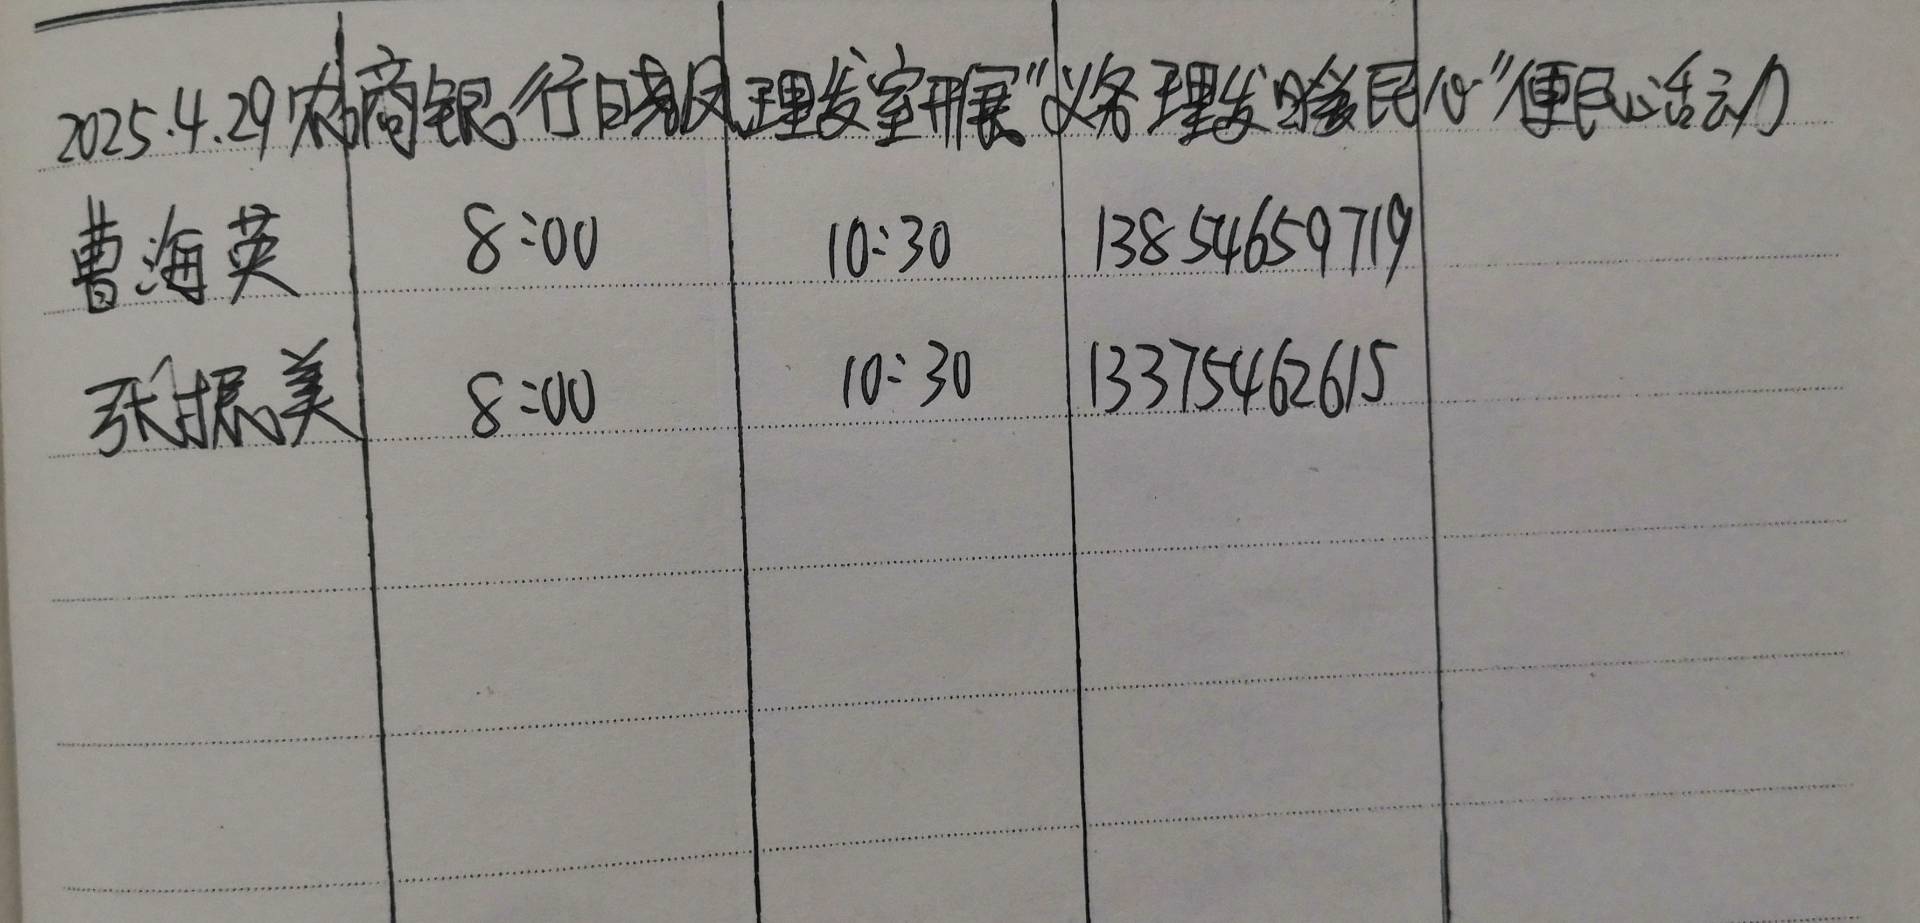 2025.4.29农商银行晓风理发室开展"义务理发暖民心"便民活动
曹海英 8:00 10:30 13854659719
张振美 8:00 10:30 13375462615